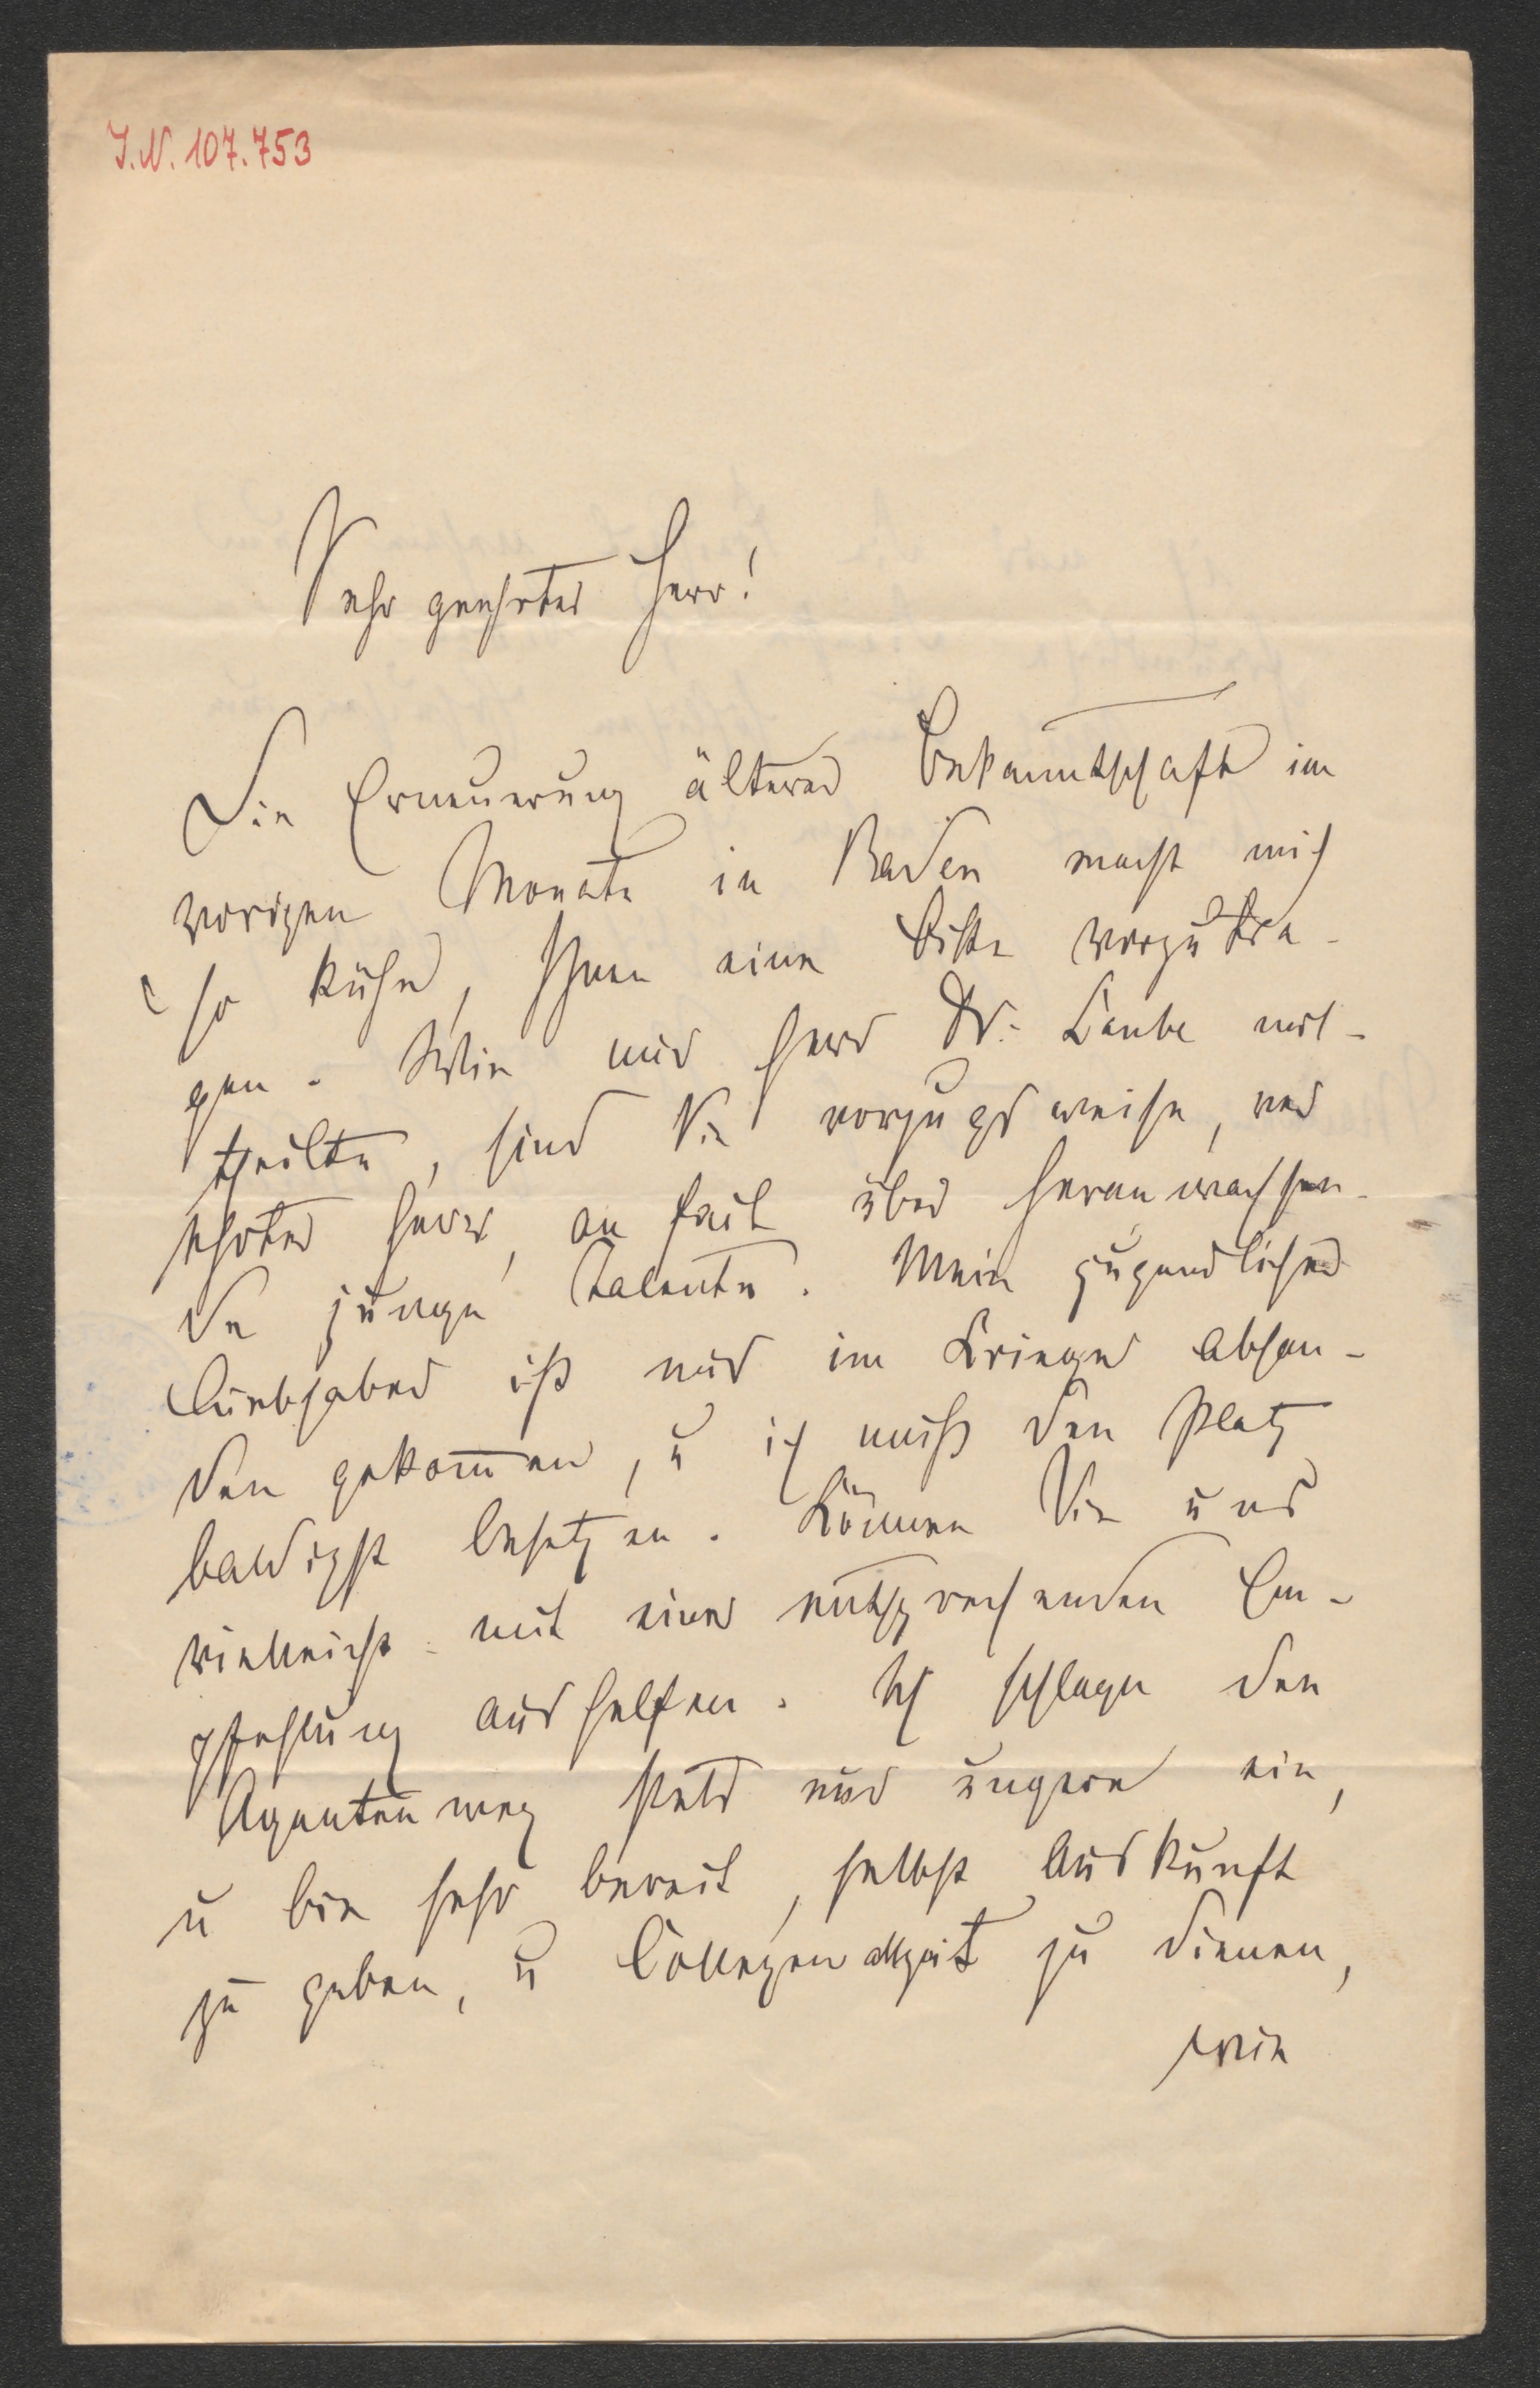 I.N. 107.753
Sehr geehrter Herr!
Die Erneuerung älterer Bekanntschaft im
vorigen Monate in Baden macht mich
so kühn, Ihnen eine Bitte vorzutra-
gen. Wie mir Herr Dr. Laube mit-
theilte, sind Sie vorzugsweise, ver
ehrter Herr, au fait über heranwachsen-
de junge Talente. Mein jugendlicher
Liebhaber ist mir im Kriege abhan-
den gekom̅en, u ich muß den Platz
baldigst besetzen. Können Sie uns
vielleicht mit einer entsprechenden Em-
pfehlung aushelfen. Ich schlage den
Agentenweg stets nur ungern ein,
u bin sehr bereit, selbst Auskunft
zu geben, u Collegen allzeit zu dienen,
wie